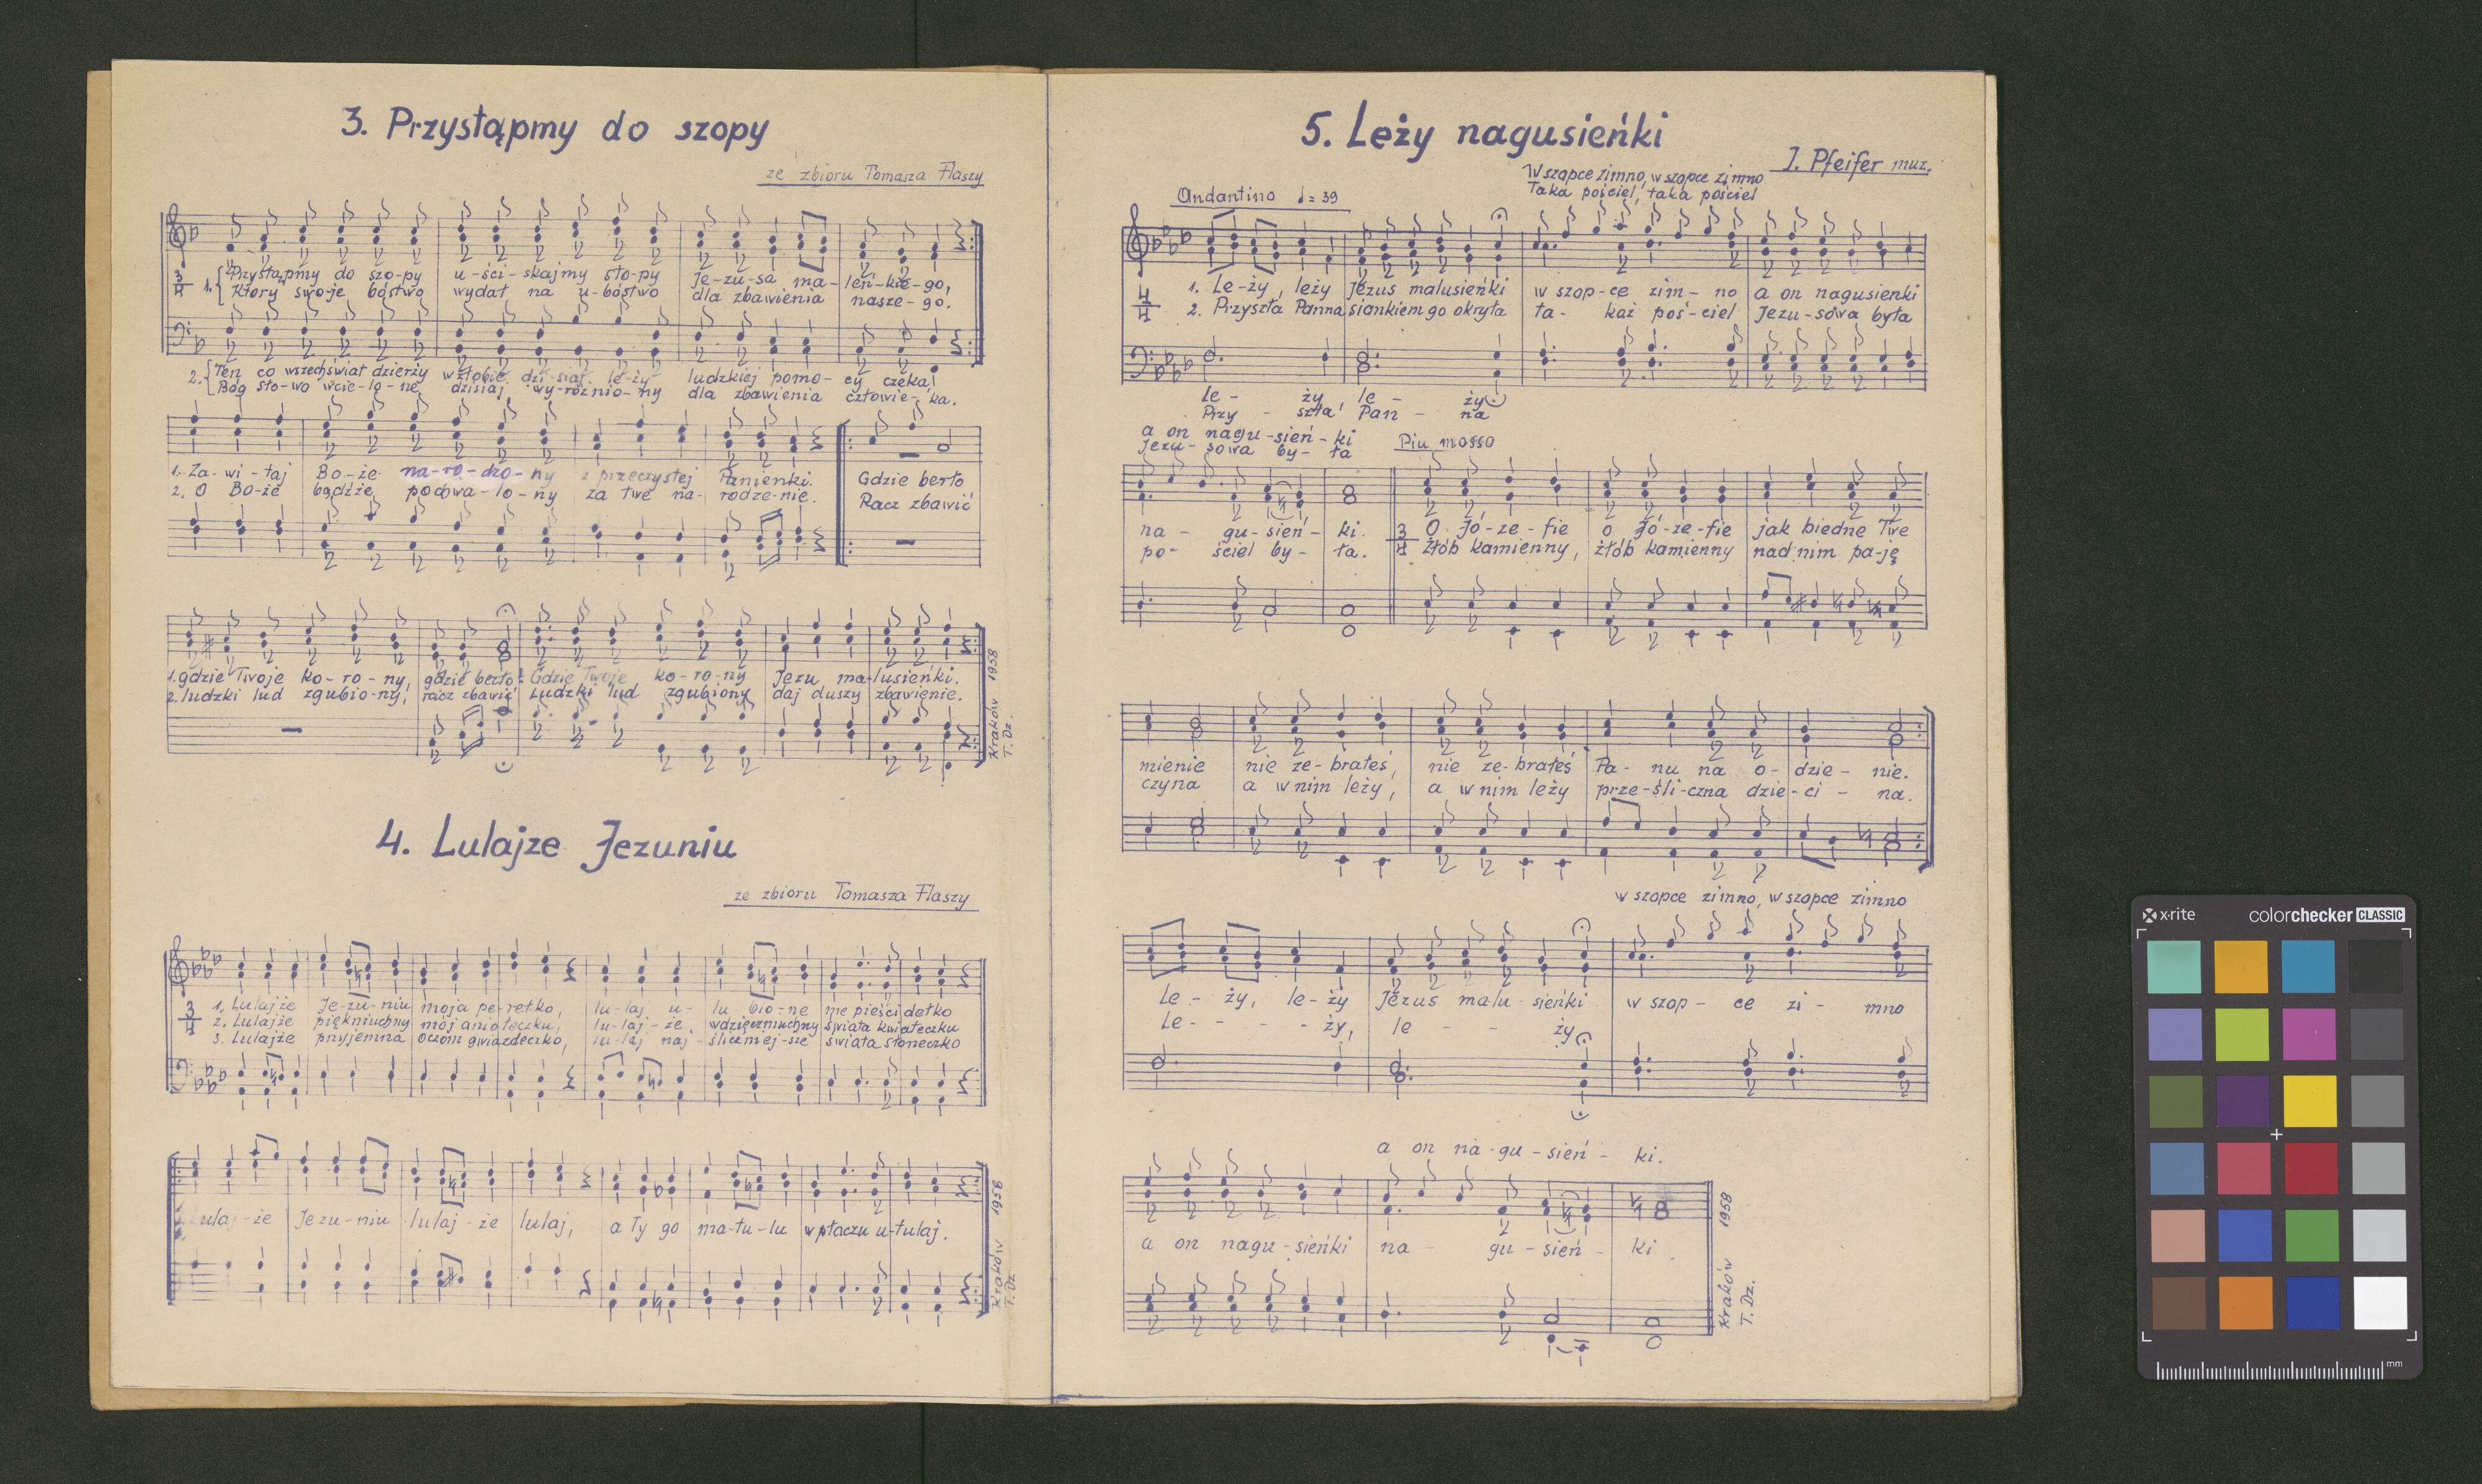 3. Przystąpmy do szopy
ze zbioru Tomasza Flaszy
3/4
1. Przystąpmy do szo-py u-ści-skajmy sto-py Je-zu-sa ma-leń-kie-go,
Który swo-je bóstwo wydał na u-bóstwo dla zbawienia nasze-go.
2. Ten co wszechświat dzierży w żłobie dzi-siaj le-ży ludzkiej pomo-cy czeka,
Bóg sło-wo wcie-lo-ne dzisiaj wy-róż nio-ny dla zbawienia człowie-ka.
1. Za-wi-taj Bo-że na-ro-dzo-ny z przeczystej Panienki. Gdzie berło
2. O Bo-że bądźże pochwa-lo-ny za twe na-rodze-nie. Racz zbawić
1. gdzie Twoje ko-ro-ny, gdzie berło! Gdzie Twoje ko-ro-ny Jezu ma-lusieńki.
2. ludzki lud zgubio-ny, racz zbawić! Ludzki lud zgubiony daj duszy zbawienie.
Kraków 1958
T. Dz.
4. Lulajze Jezuniu
ze zbioru Tomasza Flaszy
3/4
1. Lulajże Je-zu-niu moja pe-rełko, lu-laj u-lu-bio-ne me pieści dełko
2. Lulajże piękniuchny mój anio łeczku, lu-laj-że wdzięczniuchny świata kwiateczku
3. Lulajże przyjemna oczom gwiazdeczko, lu-laj naj-śliczniej-sze świata słoneczko
Lulaj-że Jezu-niu lulaj-że lulaj, a Ty go ma-tu-lu w płaczu u-tulaj.
Kraków 1958
T. Dz.
5. Leży nagusieńki
J. Pfeifer muz.
W szopce zimno, w szopce zimno
Taka pościel, taka pościel
Andantino = 39
4/4
1. Le-ży, leży Jezus malusieńki w szop-ce zim-no a on nagusienki
2. Przyszła Panna siankiem go okryła ta-każ poś-ciel Jezu-sowa była
Le-ży, le-ży
Przy-szła Pan-na
a on nagu-sień-ki
Jezu-sowa by-ła
Piu mosso
na-gu-sień-ki. 3/4 O Jó-ze-fie o Jó-ze-fie jak biedne Twe
po-ściel by-ła. Żłób kamienny, żłób kamienny nad nim pa-ję
mienie nie ze-brałeś, nie ze-brałeś Pa-nu na o-dzie-nie.
czyna a w nim leży, a w nim leży prze-śli-czna dzie-ci-na.
w szopce zimno, w szopce zimno
Le-ży, le-ży Jezus malu-sieńki w szop-ce zi-mno
Le---ży, le--ży
a on na-gu-sień-ki.
a on nagu-sieńki na-gu-sień-ki
Kraków 1958
T. Dz.
x·rite colorchecker CLASSIC
mm